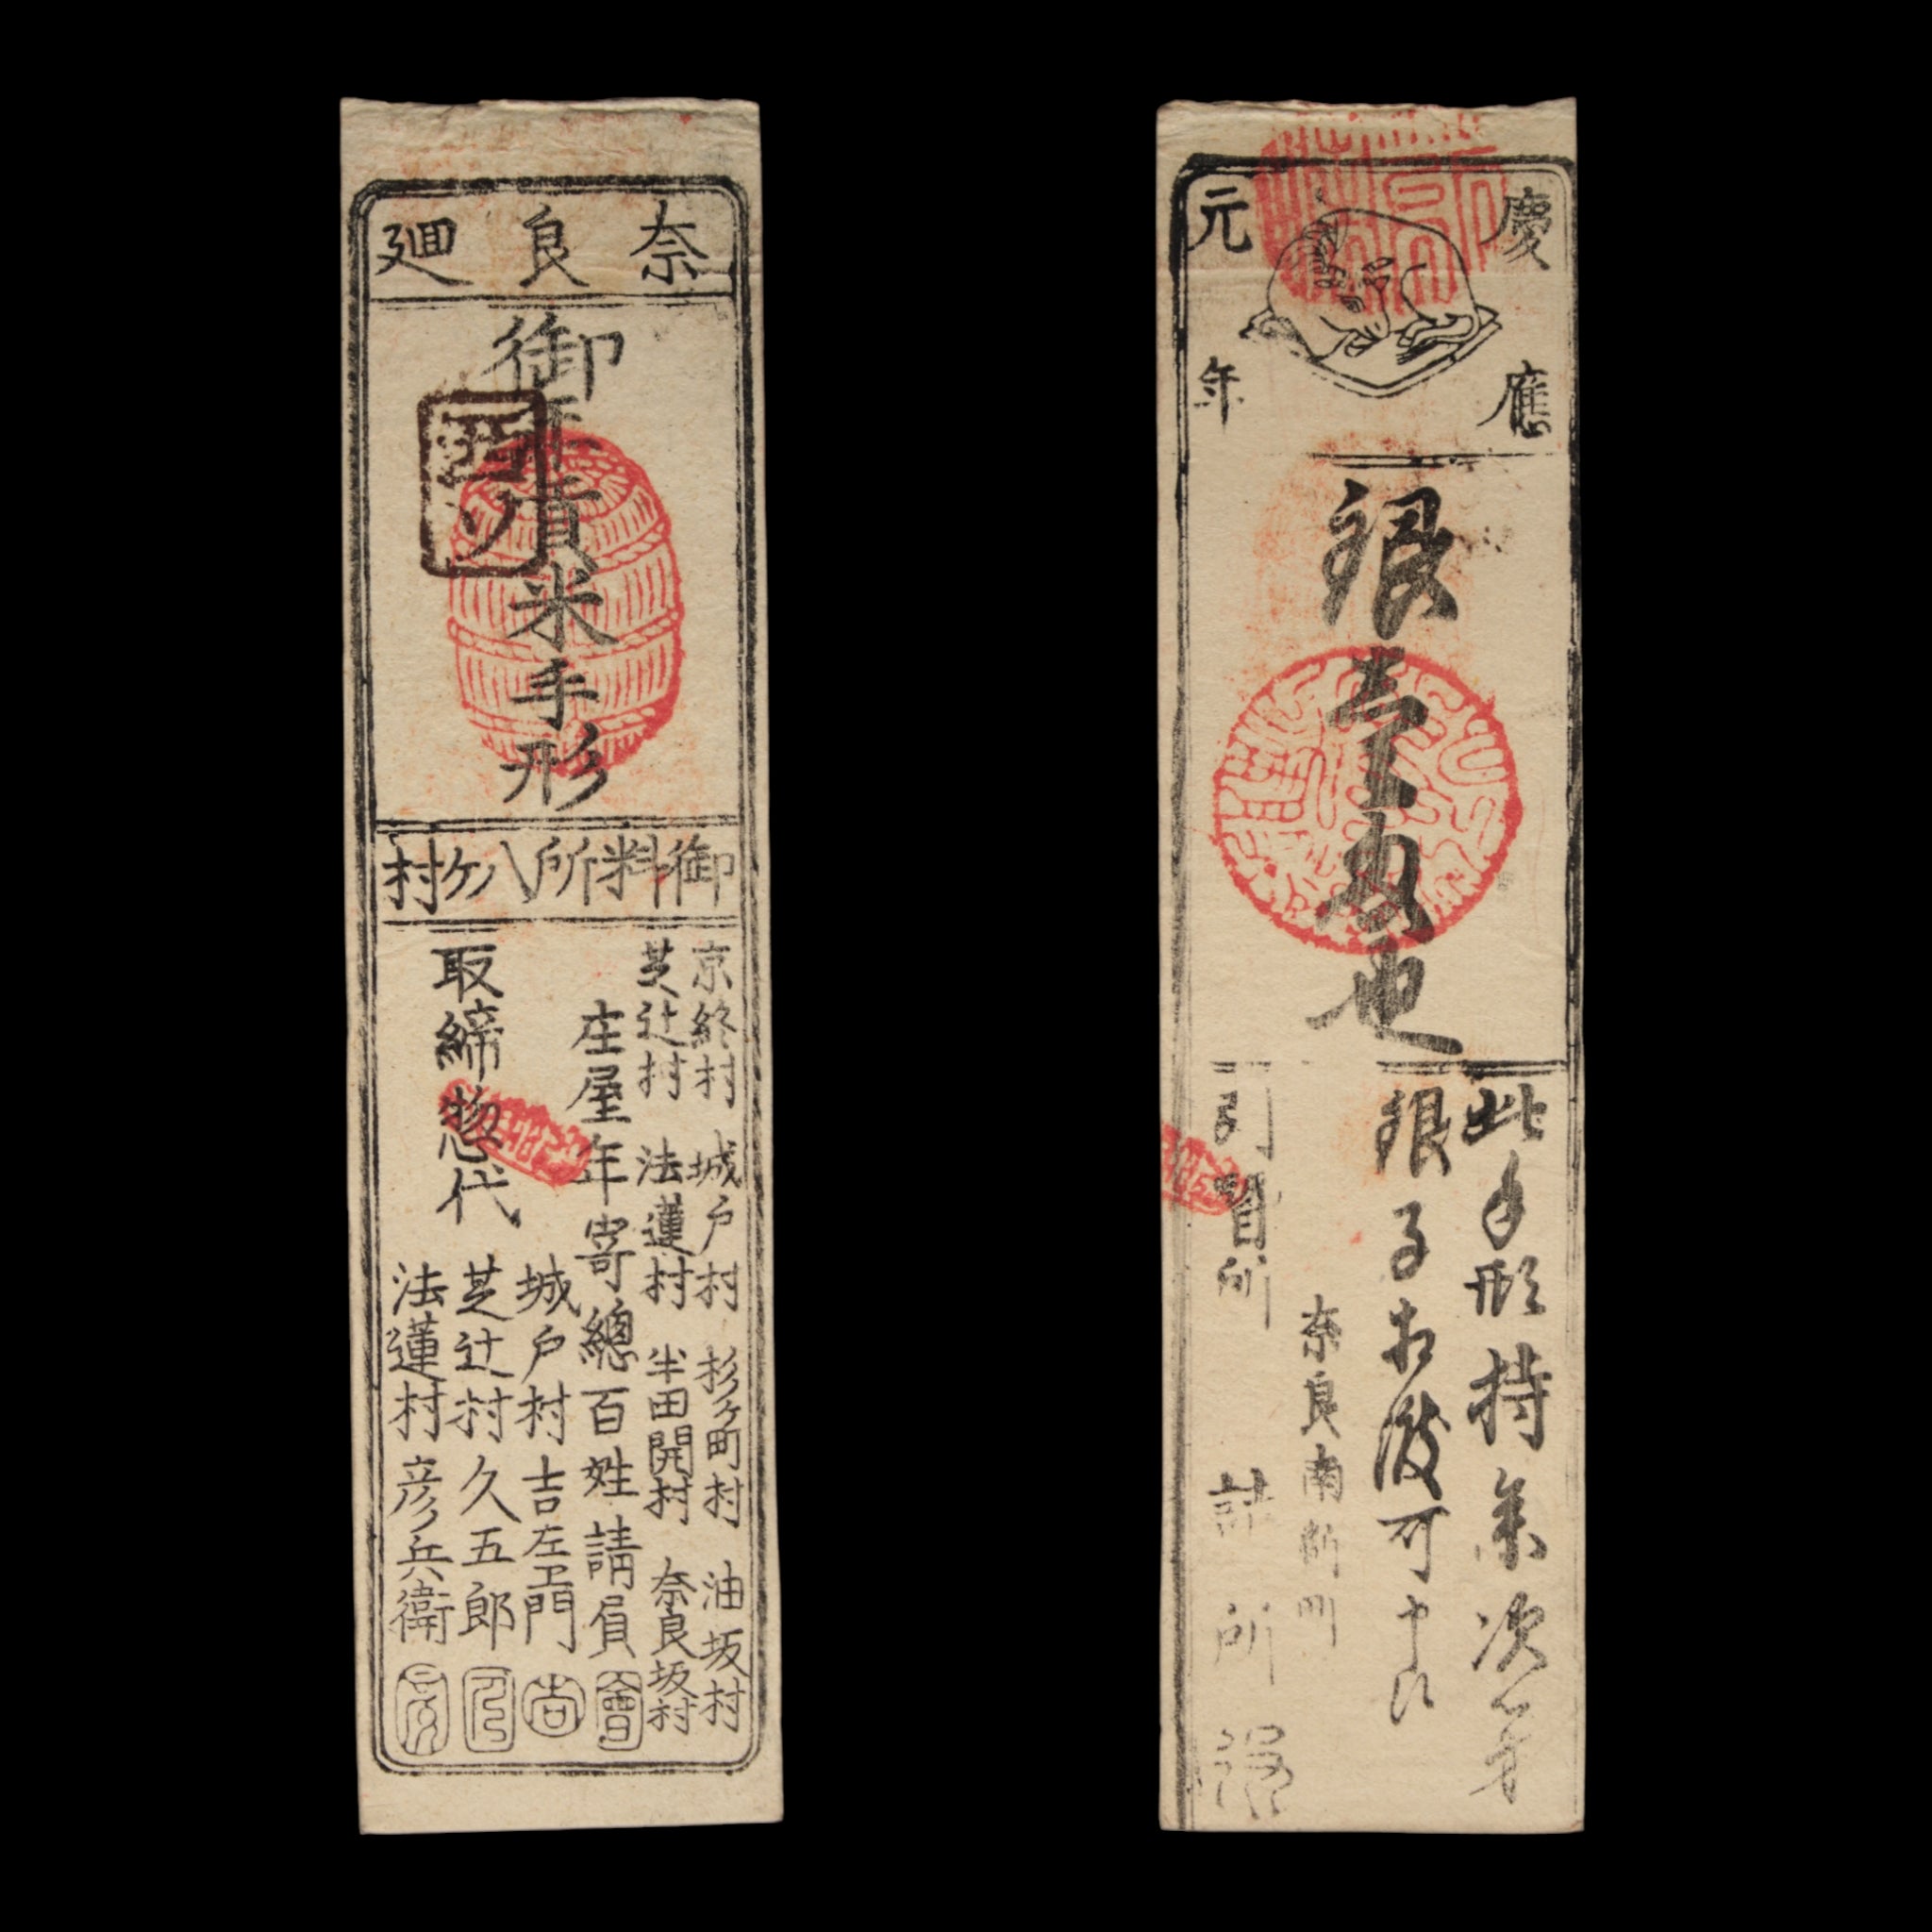 奈良廻
御年貢米手形
御料所八ケ村
京終村 城戸村 杉ケ町村 油坂村
芝辻村 法蓮村 半田開村 奈良坂村
庄屋年寄總百姓請負
取締惣代
城戸村吉左衛門
芝辻村久五郎
法蓮村彦兵衛
慶應
元年
銀壹匁也
此手形持参次第
銀子相渡可申候
奈良南
引替所
詰所